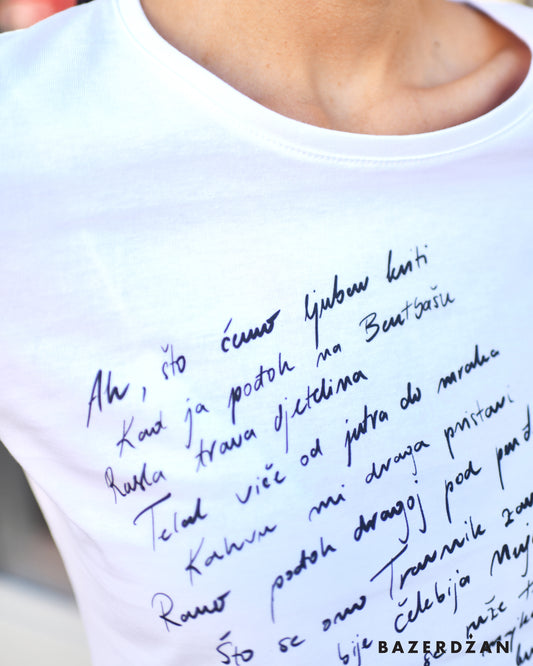 Ah, što ćemo ljubav kriti
Kad ja pođoh na Bentbašu
Rasla trava djetelina
Telal viče od jutra do mraka
Kahvu mi draga pristavi
Rano pođoh dragoj pod
Što se ono Travnik
bije čelebija
se
BAZERDŽAN